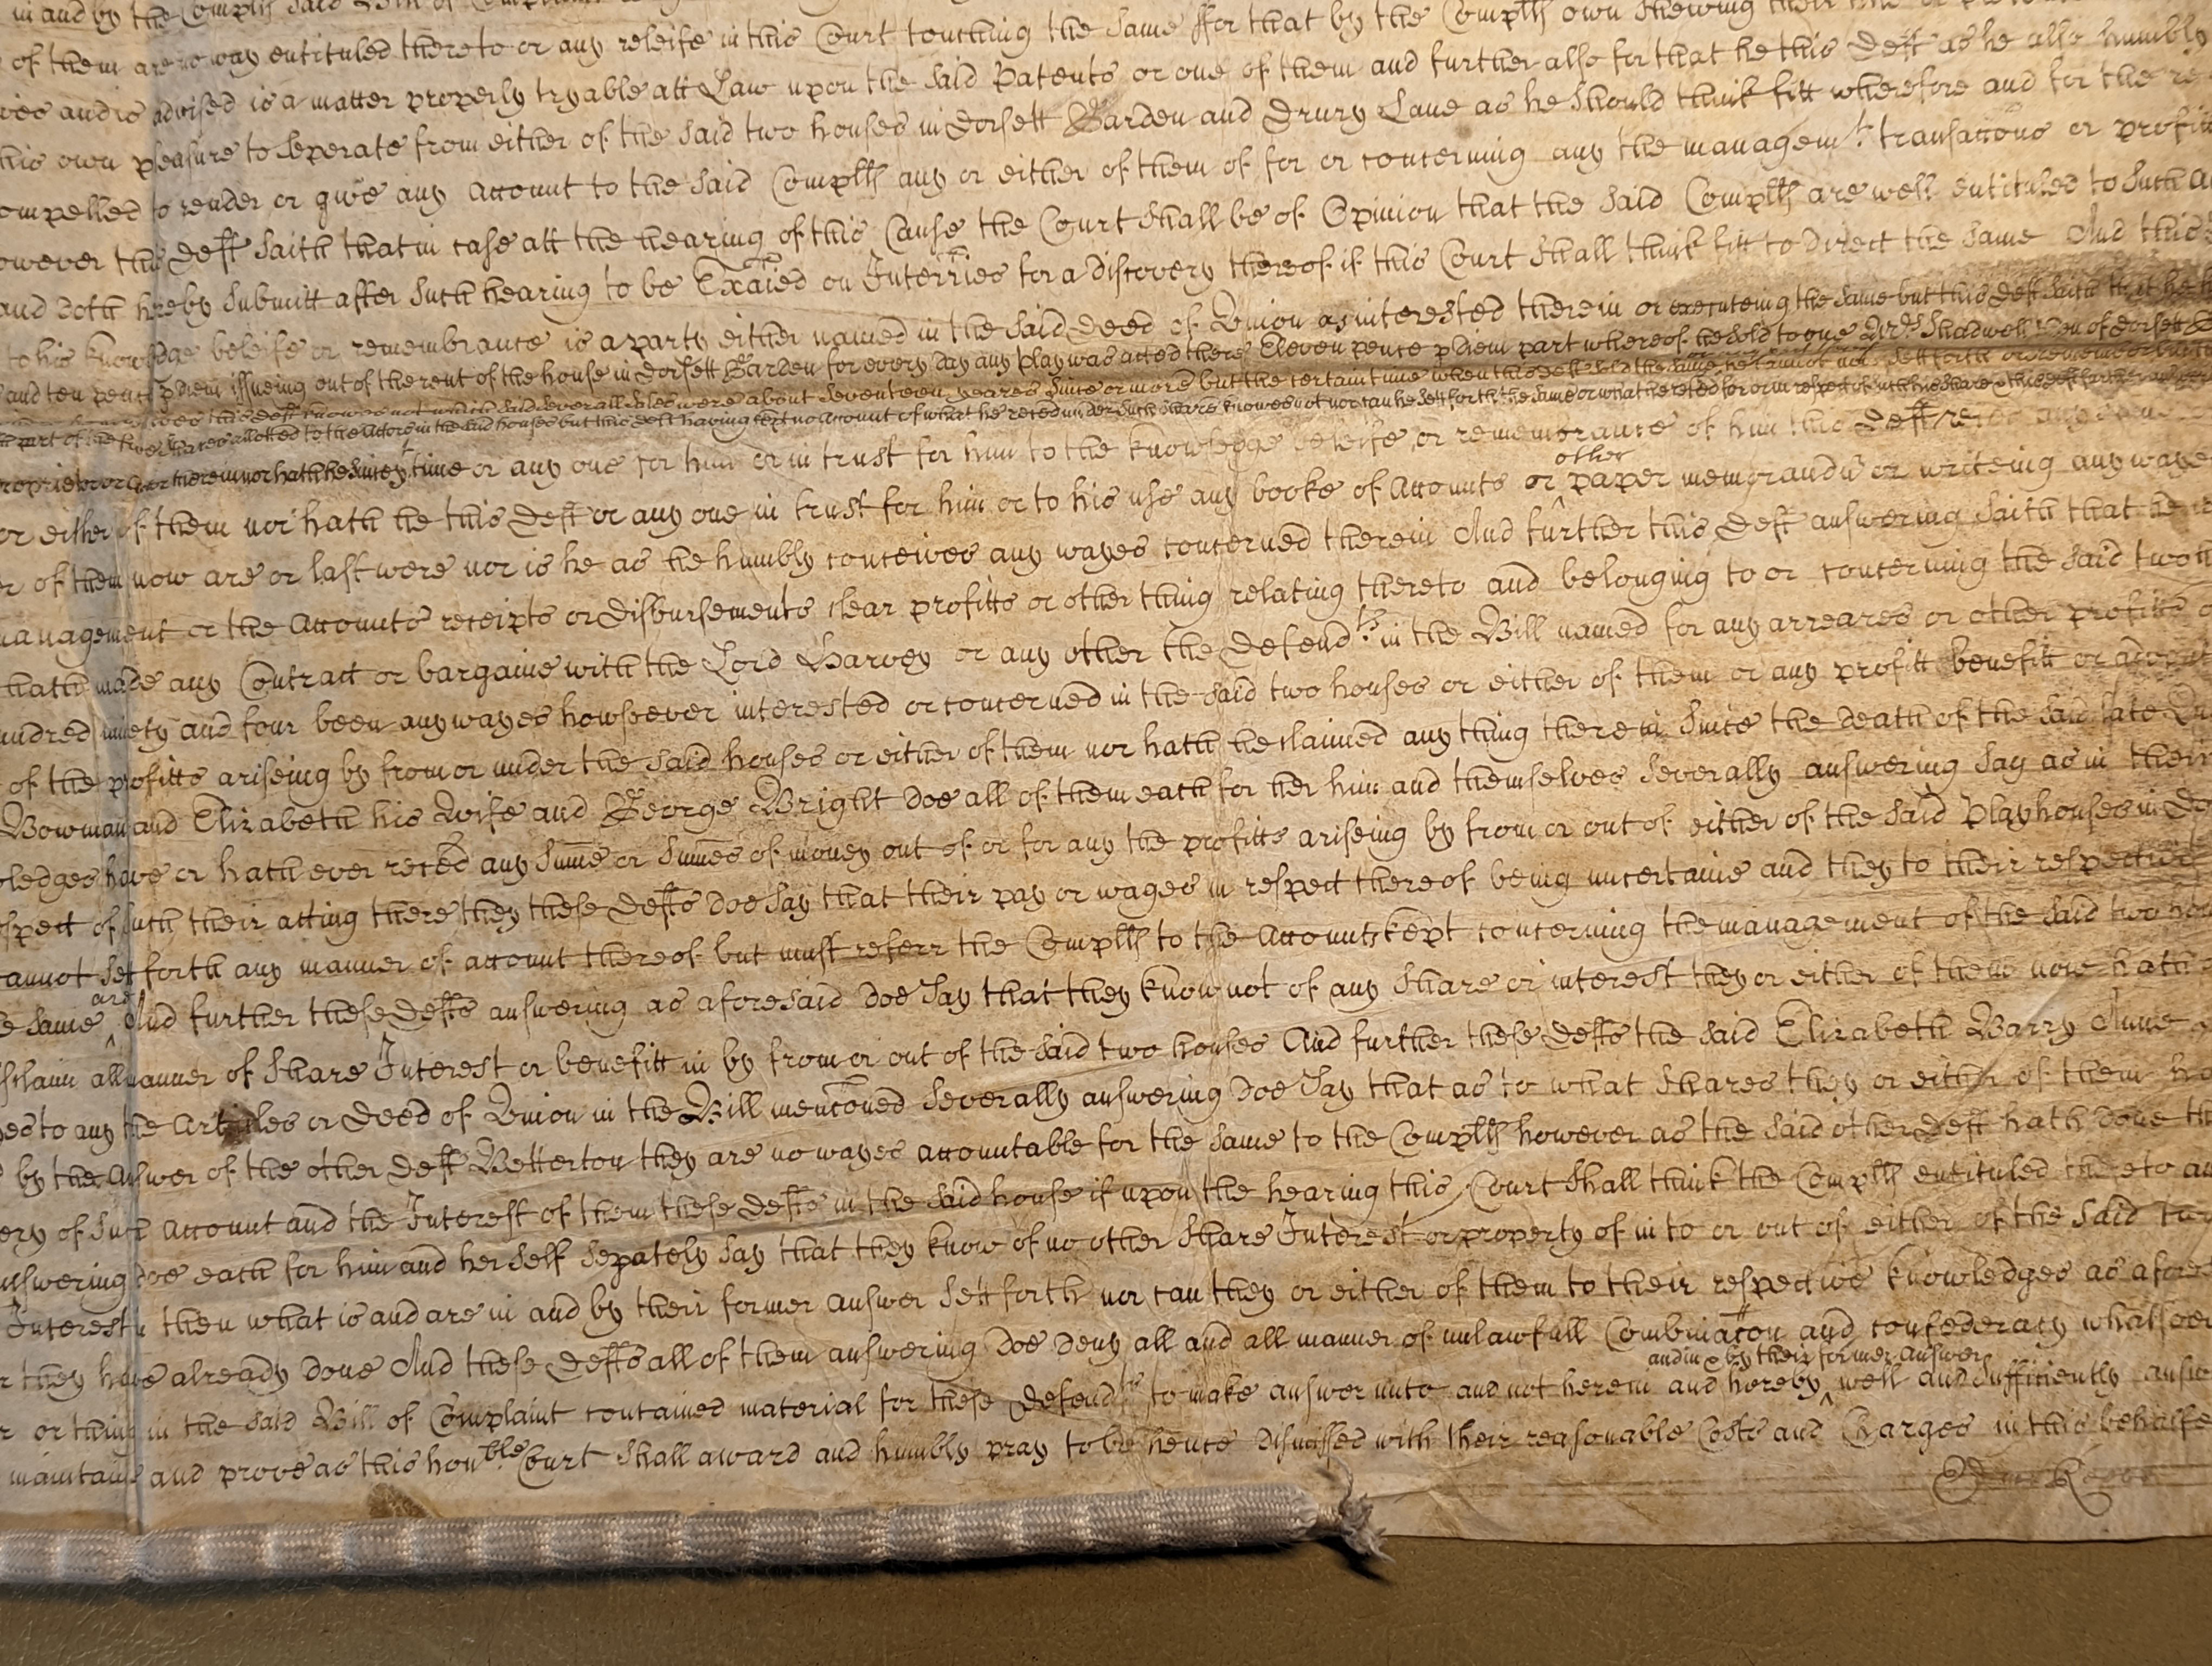 in and by the Complts said Bill of
of them are no way entituled thereto or any releife in this Court touching the same ffor that by the Complts own shewing their
and is advised is a matter properly tryable att Law upon the said Patents or one of them and further also for that he this Deft as he also humbly
his own pleasure to seperate from either of the said two houses in Dorsett Garden and Drury Lane as he should think fitt wherefore and for the
ompelled to render or give any Account to the said Complts any or either of them of for or concerning any the managemt. transaccons or profitts
owever this Deft saith that in case att the hearing of this Cause the Court shall be of Opinion that the said Complts are well entituled to such
and doth hereby submitt after such hearing to be Exaied on Interries for a discovery thereof if this Court shall think fitt to direct the same And this
to his knowledge beleife or remembrance is a party either named in the said deed of Union as interested therein or executeing the same but this Deft saith that he
and ten pence p diem issueing out of the rent of the house in Dorsett Garden for every day any play was acted there Eleven pence p diem part whereof he sold to one Mrs. Shadwell
this deft knowes not which said severall sales were about seventeen yeares since or more but the certain time when this deft sold the same he cannot now sett forth or remember
part of the five shares allotted to the Actors in the said houses but this deft having kept no account of what he reced under such share knowes not nor can he sett forth the same or what he reced for or in respect of such his share
therein nor hath he since yt time or any one for him or in trust for him to the knowledge beleife or remembrance of him this Deft
or either of them nor hath he this Deft or any one in trust for him or to his use any booke of Accounts or ^other paper memorandu or writeing any wayes
er of them now are or last were nor is he as he humbly conceives any wayes concerned therein And further this Deft answering saith that he
management or the Accounts receipts or disbursements clear profitts or other thing relating thereto and belonging to or concerning the said two
hath made any Contract or bargaine with the Lord Harvey or any other the Defendts. in the Bill named for any arreares or other profitts
undred ninety and four been any wayes howsoever interested or concerned in the said two houses or either of them or any profitt benefitt or
of the profitts ariseing by from or under the said houses or either of them nor hath he claimed any thing therein since the death of the said late
Bowman and Elizabeth his Wife and George Bright doe all of them each for her him and themselves severally answering say as in their
ledges have or hath ever reced any sume or sumes of money out of or for any the profitts ariseing by from or out of either of the said Playhouses in
spect of such their acting there they these Defts doe say that their pay or wages in respect thereof being uncertaine and they to their respective
cannot set forth any manner of account thereof but must referr the Complts to the Accounts kept concerning the management of the said two
e same are And further these Defts answering as aforesaid doe say that they know not of any share or interest they or either of them now hath
sclaim all manner of share Interest or benefitt in by from or out of the said two houses And further these Defts the said Elizabeth Barry Anne
es to any the Articles or Deed of Union in the Bill menconed severally answering doe say that as to what shares they or either of them
by the Answer of the other Deft Betterton they are no wayes accountable for the same to the Complts however as the said other Deft hath done
ery of such account and the Interest of them these Defts in the said house if upon the hearing this Court shall think the Complts entituled thereto
answering doe each for him and her self sepately say that they know of no other share Interest or property of in to or out of either of the said
Interest then what is and are in and by their former answer sett forth nor can they or either of them to their respective knowledges as
r they have already done And these Defts all of them answering doe deny all and all manner of unlawfull Combinacon and confederacy whatsoever
r or thing in the said Bill of Complaint contained material for these Defendts to make answer unto and not herein and hereby ^and in & by their former answer well and sufficiently
maintaine and prove as this honble Court shall award and humbly pray to be hence dismissed with their reasonable Costs and Charges in this behalfe